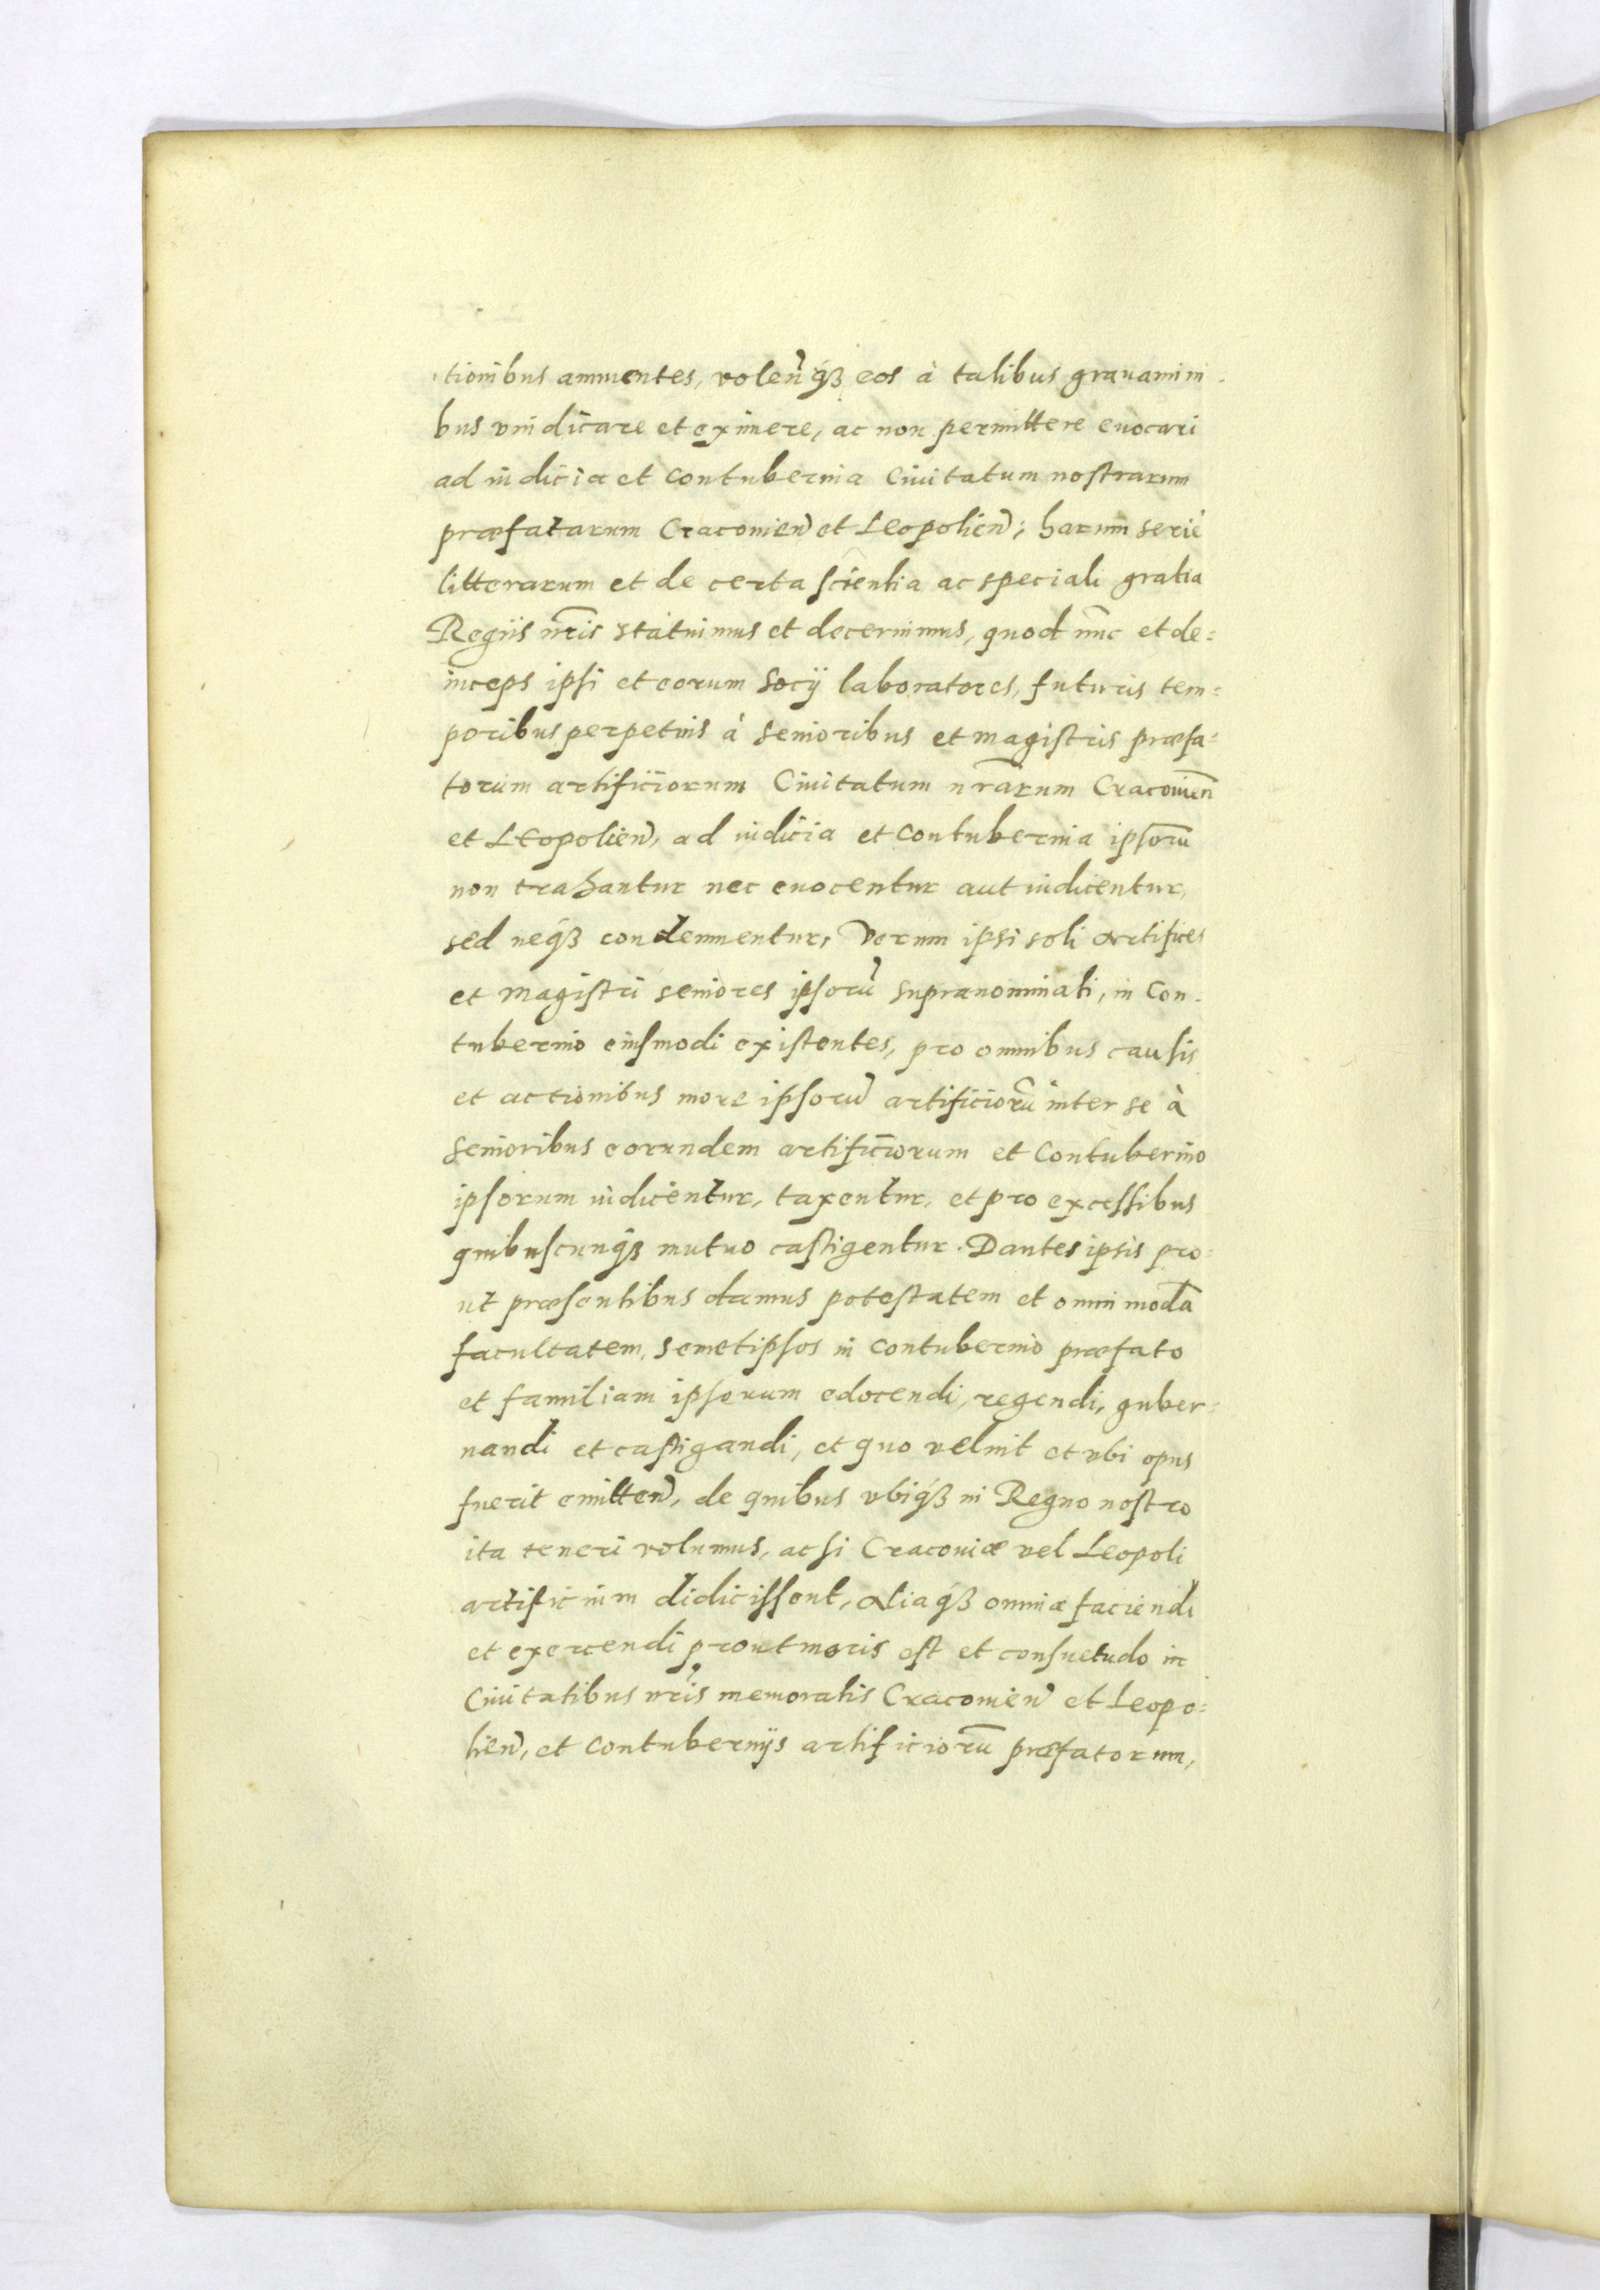 tionibus annuentes, volen̄q́ȝ eos à talibus grauamini-
bus vindicare et eximere, ac non permittere euocari
ad iudicia et contubernia Ciuitatum nostrarum
præfatarum Cracouien̄ et Leopolien̄; harum serie
litterarum et de certa scientia ac speciali gratia
Regijs nr̄is statuimus et decernimus, quod nunc et de=
inceps ipsi et eorum Socij laboratores, futuris tem=
poribus perpetuis à Senioribus et magistris præfa=
torum artificiorum Ciuitatum nr̄arum Cracouien̄
et Leopolien̄, ad iudicia et contubernia ipsorū
non trahantur nec euocentur aut iudicentur,
sed neq́ȝ condemnentur, Verum ipsi soli artifices
et magistri seniores ipsorū supranominati, in Con-
tubernio eiusmodi existentes, pro omnibus causis
et actionibus more ipsorū artificiorū inter se à
Senioribus eorundem artificiorum et Contubernio
ipsorum iudicentur, taxentur, et pro excessibus
quibuscunq́ȝ mutuo castigentur. Dantes ipsis pro=
ut præsentibus damus potestatem et omnimodā
facultatem, semetipsos in contubernio præfato
et familiam ipsorum edocendi, regendi, guber=
nandi et castigandi, et quo veluit et vbi opus
fuerit emitten̄, de quibus vbiq́ȝ in Regno nostro
ita teneri volumus, ac si Cracouiæ vel Leopoli
artificium didicissent, aliaq́ȝ omnia faciendi
et exercendi prout moris est et consuetudo in
Ciuitatibus nr̄is memoratis Cracouien̄ et Leopo=
lien̄, et Contubernijs artificiorū præfatorum,